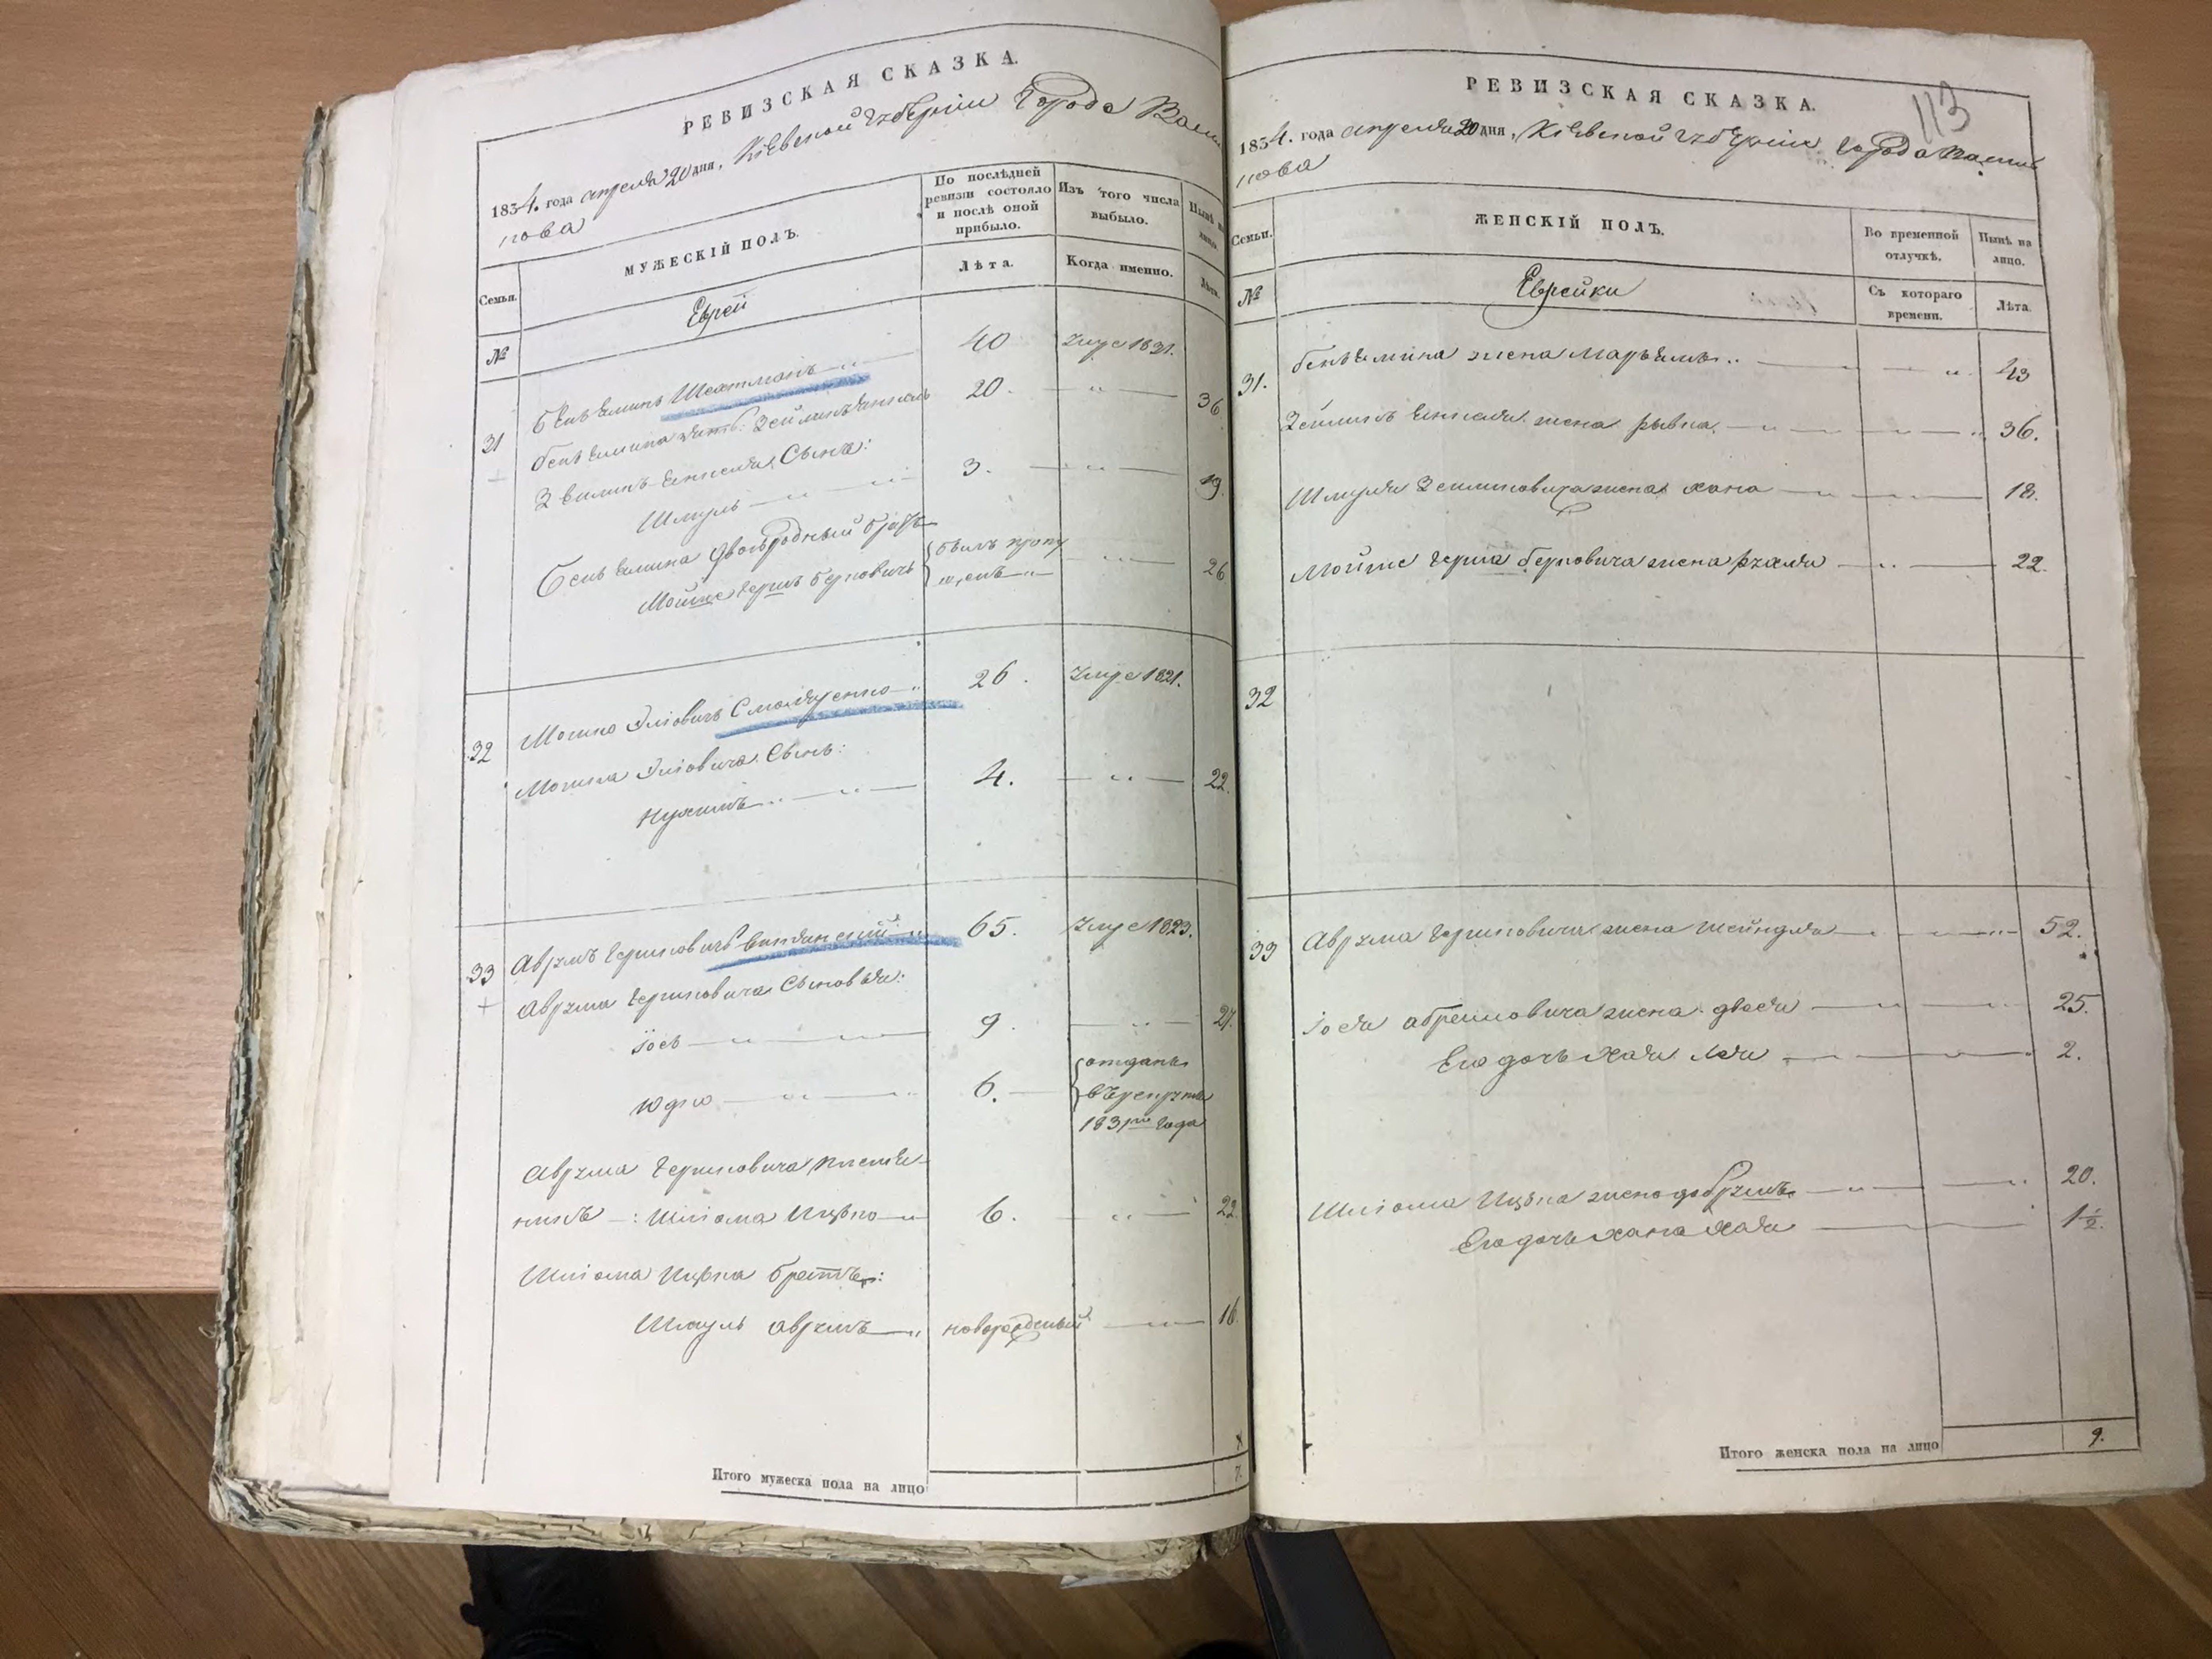 РЕВИЗСКАЯ СКАЗКА.
1834. года апреля 20 дня, Кіевской Губерніи Города Васил
кова
Семьи.
МУЖЕСКІЙ ПОЛЪ.
По послѣдней ревизіи состояло и послѣ оной прибыло.
Изъ того числа выбыло.
Нынѣ на лицо
№
Еврей
Лѣта.
Когда именно.
Лѣта.
31
Беньяминъ 40 Умре 1831.
Беньямина зять: Зейликъ 20. 36
Сынъ:
Шмуль 3. 19.
Беньямина двоюродный братъ
Мойше Герш Берковичъ былъ 26
32
Мошко Эліовичъ 26. Умре 1821.
Мошка Эліовича Сынъ:
Нухимъ 4. 22.
33
Аврумъ Гершковичъ 65. Умре 1823.
Аврума Гершковича Сыновья:
Іось 9. 27.
Юдко 6. отданъ
въ рекруты
1831го года
Аврума Гершковича племян
никъ: Шліома Ицько 6. 22.
Шліома Ицька братъ:
Шмуль Аврумъ новорожденный 16.
Итого мужеска пола на лицо 7.
РЕВИЗСКАЯ СКАЗКА.
113
1834. года апреля 20 дня, Кіевской Губерніи Города Василь
кова
Семьи.
ЖЕНСКІЙ ПОЛЪ.
Во временной отлучкѣ.
Нынѣ на лицо.
№
Еврейки
Съ котораго времени.
Лѣта.
31.
Беньямина жена Марьямъ 43
жена Рывка 36.
Шмуля Зейликовича жена Хана 18.
Мойше Герша Берковича жена Рухля 22.
32
33
Аврума Гершковича жена Шейндля 52.
Іося Абрамовича жена Двося 25.
Его дочь Хая Лея 2.
Шліома Ицька жена 20.
Его дочь Хана Хая 1½.
Итого женска пола на лицо 9.